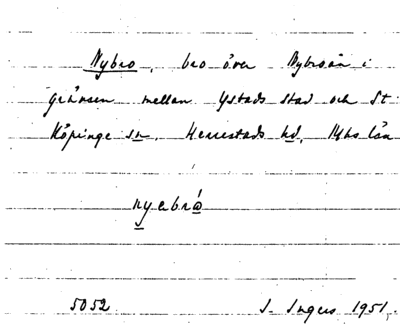 Nybro, bro över Nybroån i
gränsen mellan Ystads stad och St
Köpinge sn. Herrestads hd, Mhs län
nyebrö
5052. I. Ingers 1951.